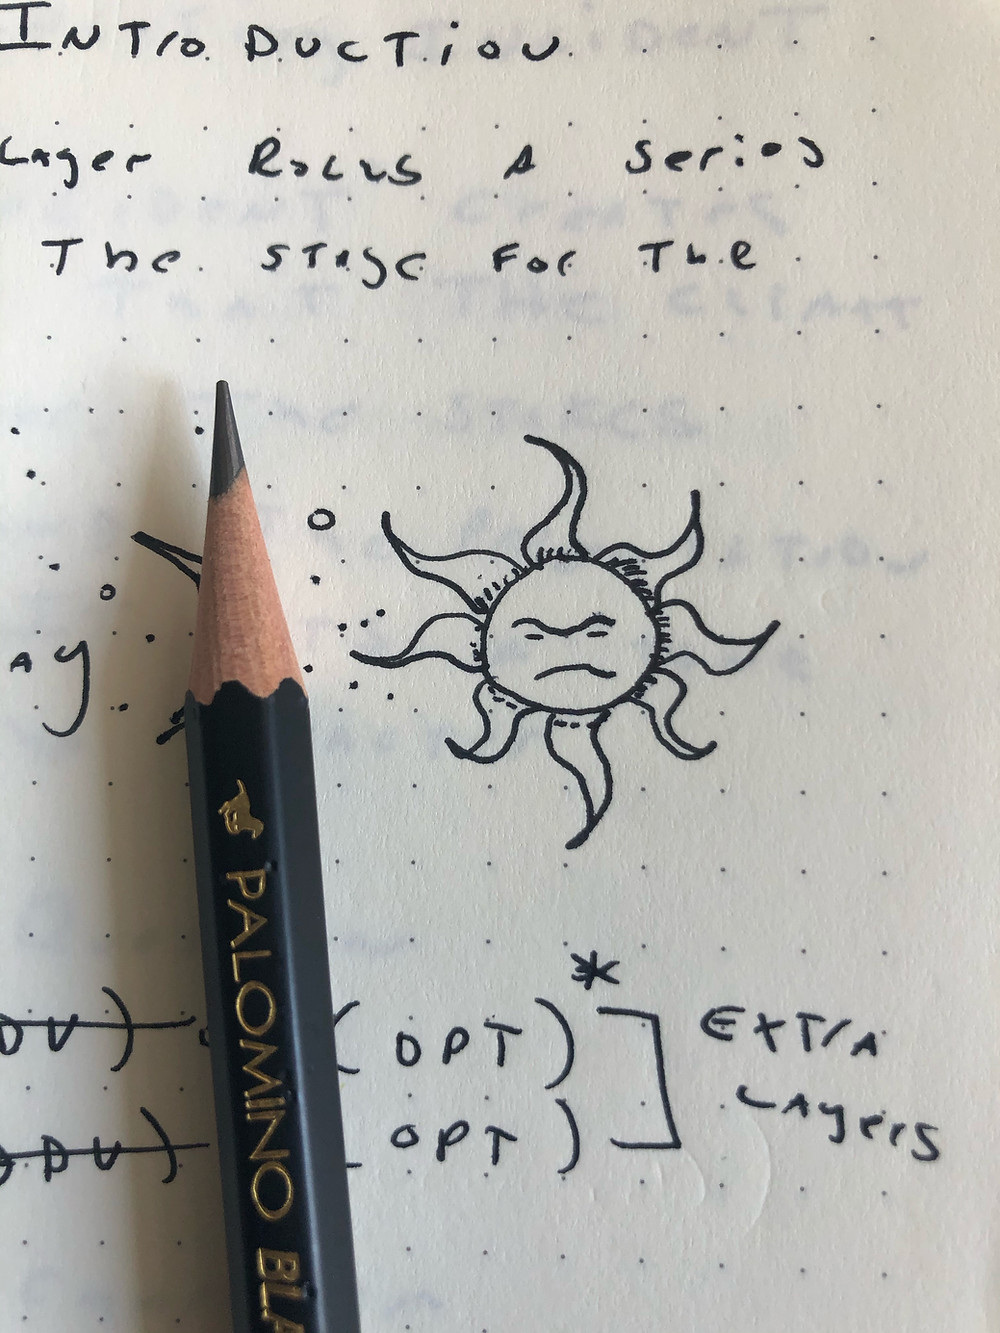 INTRODUCTION
Layer Rolls A Series
The stage for the
Ay
DV) (OPT) * EXTrA
DDV) OPT) LAyers
PALOMINO BLA